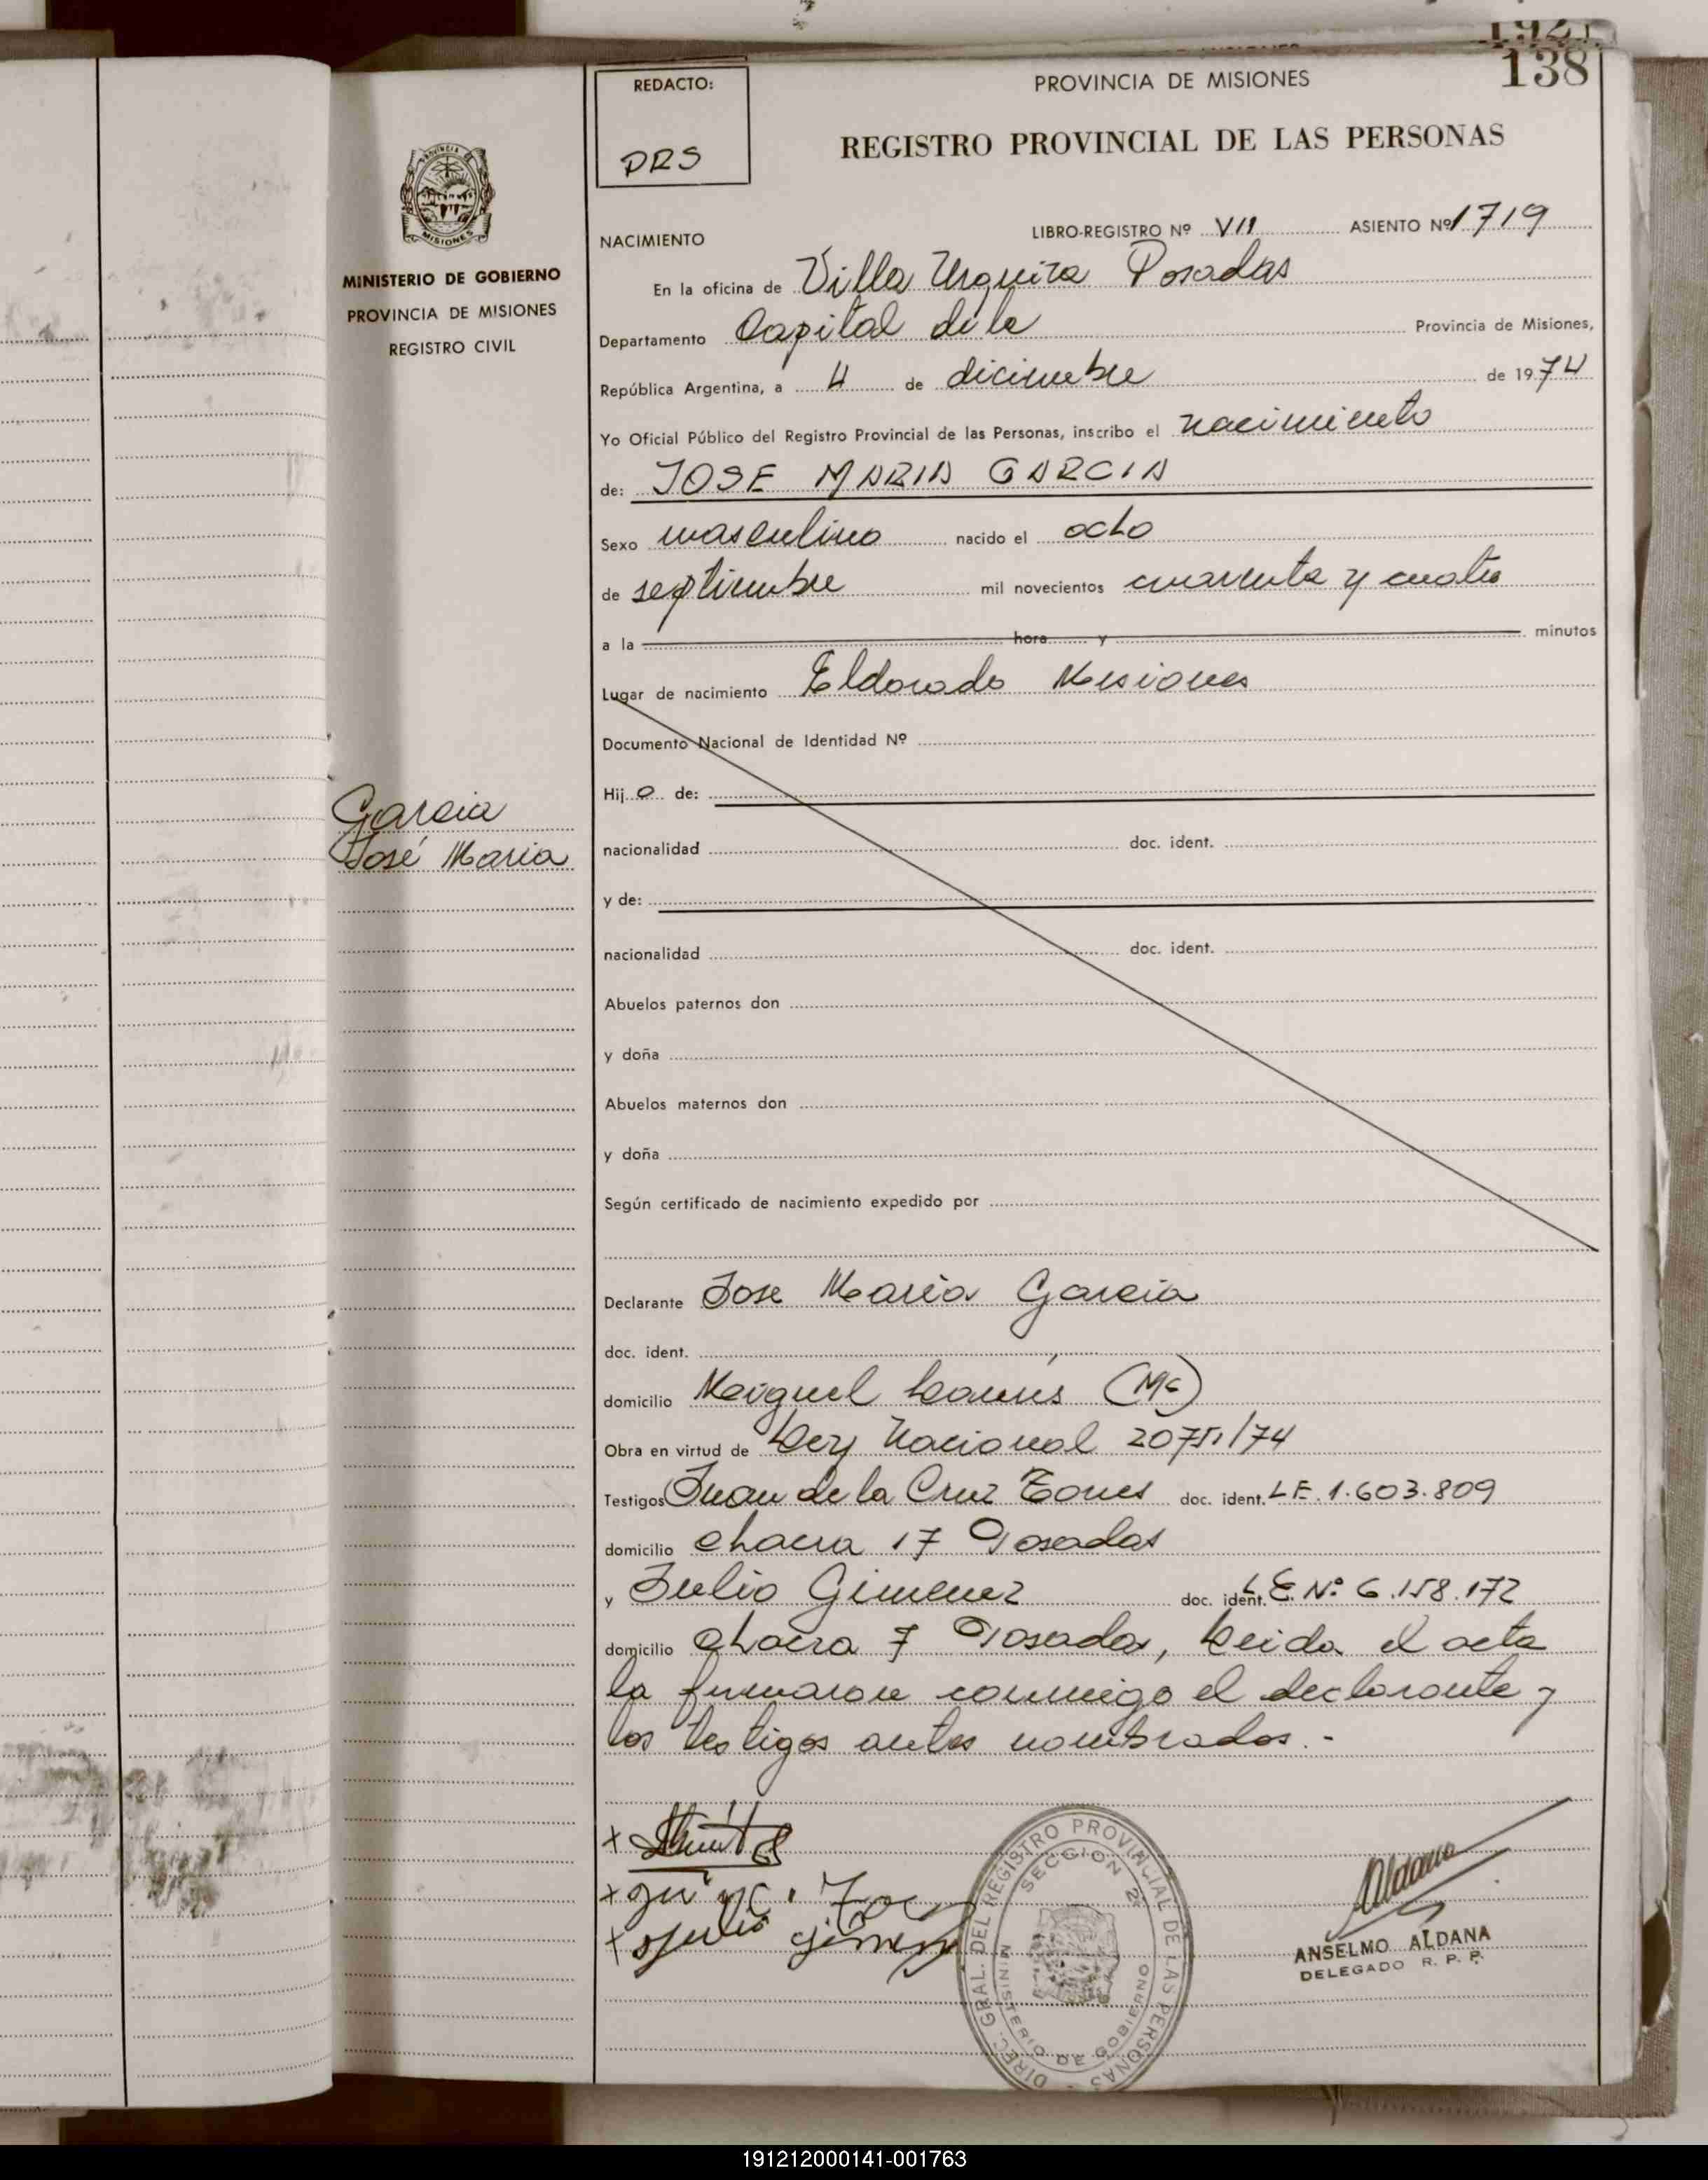 192
138
REDACTO:
DRS
PROVINCIA DE MISIONES
REGISTRO PROVINCIAL DE LAS PERSONAS
MISIONES
MINISTERIO DE GOBIERNO
PROVINCIA DE MISIONES
REGISTRO CIVIL
NACIMIENTO
LIBRO-REGISTRO Nº VII ASIENTO Nº 1719
En la oficina de Villa Urquiza Posadas
Departamento Capital de la Provincia de Misiones,
República Argentina, a 4 de diciembre de 1974
Yo Oficial Público del Registro Provincial de las Personas, inscribo el nacimiento
de: JOSE MARIA GARCIA
Sexo masculino nacido el ocho
de septiembre mil novecientos cuarenta y cuatro
a la hora y minutos
Lugar de nacimiento Eldorado Misiones
Documento Nacional de Identidad Nº
Hijo de:
Garcia
José Maria
nacionalidad doc. ident.
y de:
nacionalidad doc. ident.
Abuelos paternos don
y doña
Abuelos maternos don
y doña
Según certificado de nacimiento expedido por
Declarante Jose Maria Garcia
doc. ident.
domicilio
Obra en virtud de Ley Nacional 20751/74
Testigos Juan de la Cruz doc. ident. L.E. 1.603.809
domicilio chacra 17 Posadas
y Julio Gimenez doc. ident. L.E. Nº 6.158.172
domicilio chacra 7 Posadas, Leida el acta
la firmaron conmigo el declarante y
los testigos antes nombrados.-
Julio Gimenez
DIREC. GRAL. DEL REGISTRO PROVINCIAL DE LAS PERSONAS
SECCION 2ª
MINISTERIO DE GOBIERNO
Aldana
ANSELMO ALDANA
DELEGADO R. P. P.
191212000141-001763